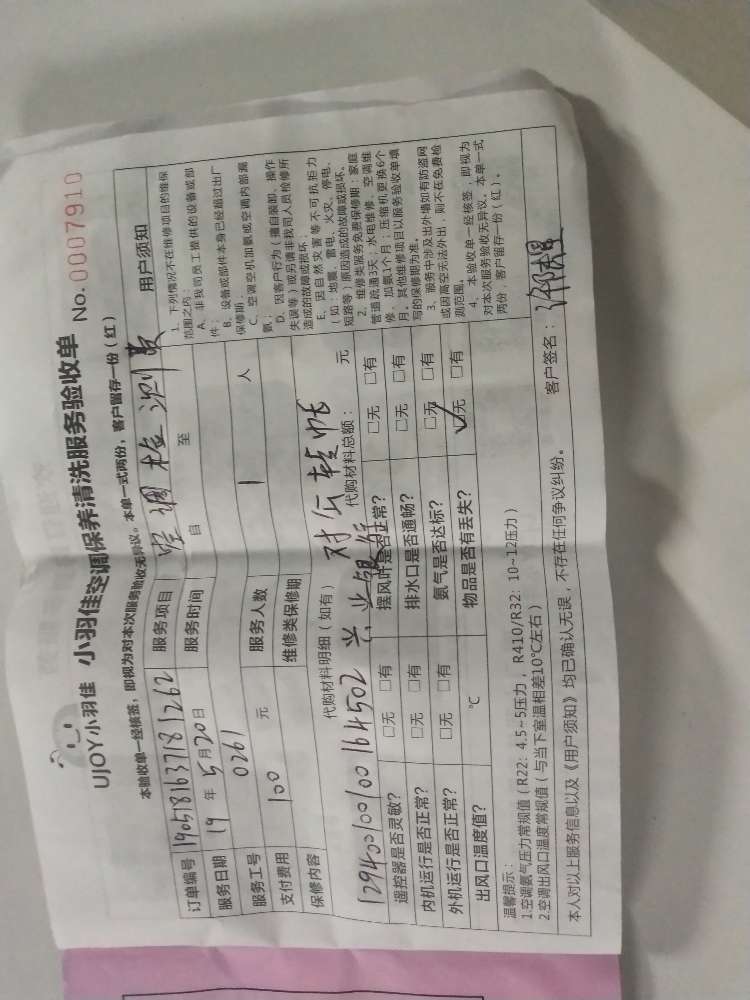 UJOY小羽佳 小羽佳空调保养清洗服务验收单 No. 0007910
本验收单一经核签，即视为对本次服务验收无异议。本单一式两份，客户留存一份（红）
订单编号 190518163718 1262 服务项目 空调检测费
服务日期 19 年 5 月 20 日 服务时间 自 至
服务工号 0261 服务人数 1 人
支付费用 100 元 维修类保修期
保修内容 代购材料明细（如有） 代购材料总额： 元
129400100100164502 兴业银行 对公转帐
遥控器是否灵敏？ □无 □有 摆风叶是否正常？ □无 □有
内机运行是否正常？ □无 □有 排水口是否通畅？ □无 □有
外机运行是否正常？ □无 □有 氨气是否达标？ □无 □有
出风口温度值？ ℃ 物品是否有丢失？ ✓无 □有
温馨提示：
1.空调氨气压力常规值（R22：4.5~5压力，R410/R32：10~12压力）
2.空调出风口温度常规值（与当下室温相差10℃左右）
本人对以上服务信息以及《用户须知》均已确认无误，不存在任何争议纠纷。 客户签名：
用户须知
1、下列情况不在维修项目的维保
范围之内：
A、非我司员工提供的设备或部
件；
B、设备或部件本身已经超过出厂
保修期；
C、空调空机加氨或空调内部漏
氨；
D、因客户行为（擅自装卸、操作
失误等）或另请非我司人员检修所
造成的故障或损坏；
E、因自然灾害等不可抗拒力
（如：地震、雷电、火灾、停电、
短路等）原因造成的故障或损坏。
2、维修类服务免费保修期：家庭
管道疏通3天；水电维修、空调维
修、加氨1个月；压缩机更换6个
月。其他维修项目以服务验收单填
写的保修期为准。
3、服务中涉及出外墙如有防盗网
或因高空无法外出，则不在免费检
测范围。
4、本验收单一经核签，即视为
对本次服务验收无异议。本单一式
两份，客户留存一份（红）。